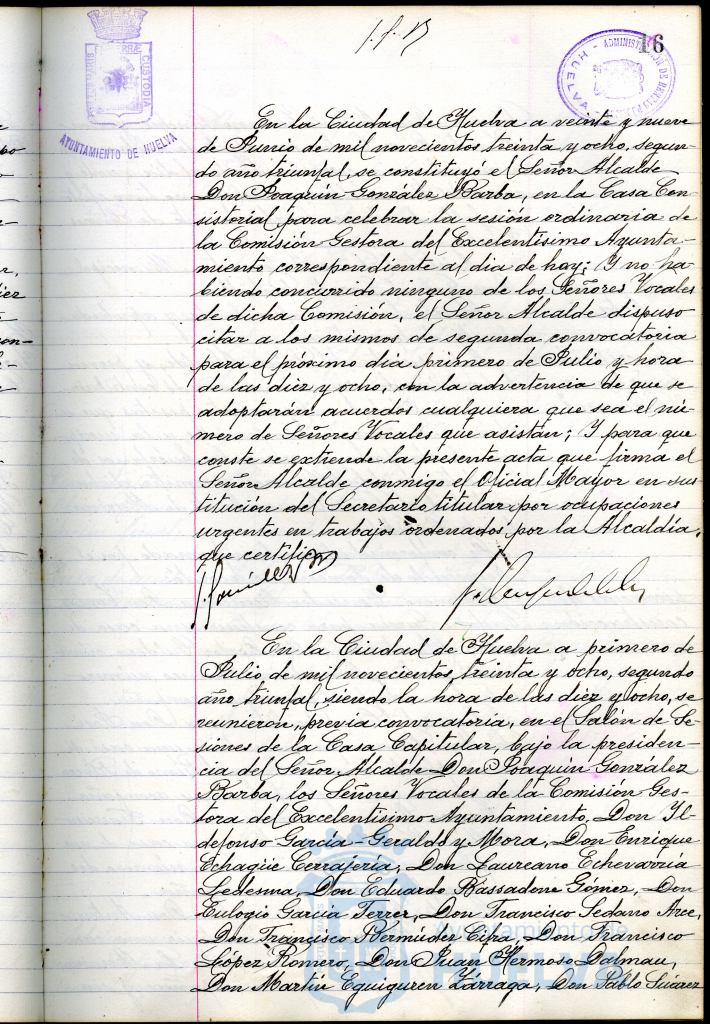 16
AYUNTAMIENTO DE HUELVA
CUSTODIA
En la Ciudad de Huelva a veinte y nueve
de Junio de mil novecientos treinta y ocho, segun-
do año triunfal, se constituyó el Señor Alcalde
Don Joaquín González Barba, en la Casa Con
sistorial para celebrar la sesión ordinaria de
la Comisión Gestora del Excelentísimo Ayunta-
miento correspondiente al dia de hoy; Y no ha-
biendo concurrido ninguno de los Señores Vocales
de dicha Comisión, el Señor Alcalde dispuso
citar a los mismos de segunda convocatoria
para el próximo dia primero de Julio y hora
de las diez y ocho, con la advertencia de que se
adoptarán acuerdos cualquiera que sea el nú-
mero de Señores Vocales que asistan; Y para que
conste se extiende la presente acta que firma el
Señor Alcalde conmigo el Oficial Mayor en sus
titución del Secretario titular por ocupaciones
urgentes en trabajos ordenados por la Alcaldía,
que certifico
En la Ciudad de Huelva a primero de
Julio de mil novecientos treinta y ocho, segundo
año triunfal, siendo la hora de las diez y ocho, se
reunieron, previa convocatoria, en el Salón de Se-
siones de la Casa Capitular, bajo la presiden-
cia del Señor Alcalde Don Joaquín González
Barba, los Señores Vocales de la Comisión Ges-
tora del Excelentísimo Ayuntamiento, Don Il
defonso García-Geraldo y Mora, Don Enrique
Echagüe Cerrajería, Don Laureano Echevarría
Ledesma, Don Eduardo Bassadone Gómez, Don
Eulogio García Ferrer, Don Francisco Sedano Arce,
Don Francisco Bermúdez Cipa, Don Francisco
López Romero, Don Juan Hermoso Dalmau,
Don Martín Eguiguren Zárraga, Don Pablo Suárez
Ayuntamiento de
HUELVA